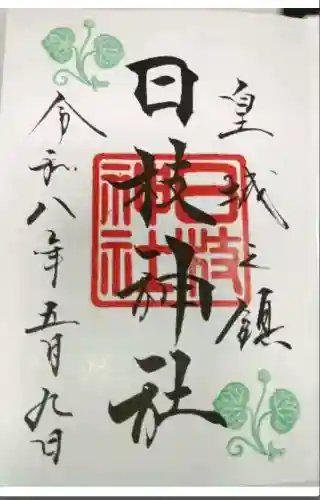 皇城之鎮
日枝神社
日枝神社
令和八年五月九日